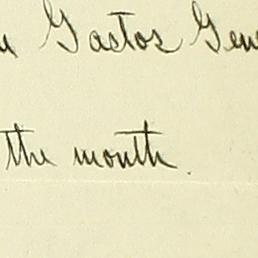 Gastos
the month.